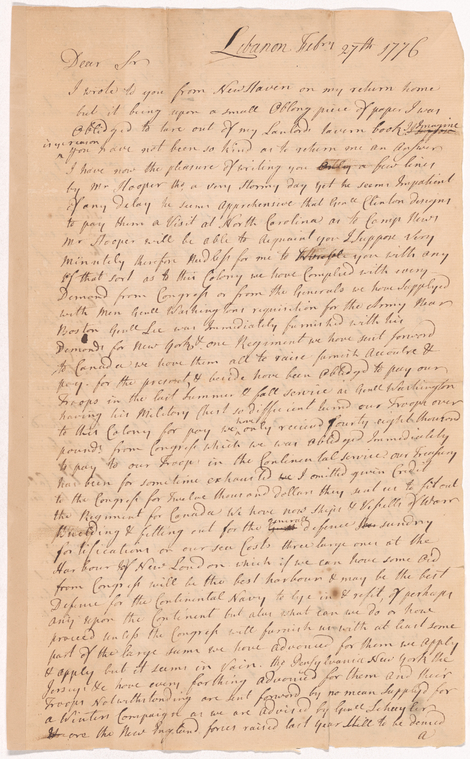 Lebanon Febry 27th 1776
Dear Sr
I wrote to you from New Haven on my return home
but it being upon a small Oblong piece of paper I was
Oblidged to tare out of my Lanlords tavern book I Imagine
is y reason
you have not been so kind as to return one an answer
I have now the pleasure of writing you only a few lines
by Mr Hooper tho a very Stormy day yet he seems Impatient
of any Delay he seems apprehensive that Genll Clinton designs
to pay them a Visit at North Carolina as to Camp News
Mr Hooper will be able to Aquaint you I Suppose very
Minutely therefore Needless for me to trouble you with any
of that sort as to this Colony we have Complied with every
Demand from Congress or from the Generals we have Supplyed
with Men Genll Washingtons requisition for the Army Near
Boston Genll Lee was Immediately furnished with his
Demands for New York & one Regiment we have sent forward
to Canada we have them all to raise furnish Accoutre &
pay for the present, & beside have been Oblidged to pay our
Troops in the last Summer & fall service as Genll Washington
having his Military Chest so difficient turnd our Troops over
to this Colony for pay we have only receivd fourty eight thousand
pounds from Congress which we was Oblidged Immediately
to pay to our Troops in the Continental service our Treasury
has been for some time exhausted we I omitted given Credit
to the Congress for Twelve thousand Dollars they sent us to fit out
the Regiment for Canada we have now Ships & Vessells of Warr
Building & fitting out for the Generall defence sundry
fortifications on our sea Costs three large ones at the
Harbour of New London which if we can have some Aid
from Congress will be the best harbour & may be the best
Defence for the Continental Navy to lye in & refit, of perhaps
any upon the Continent but alas what can we do or how
proceed unless the Congress will furnish us with at least some
part of the large sums we have advanced for them we apply
& apply but it seems in Vain. the Pensylvania New York the
Jerseys &c have every farthing advanced for them and their
Troops Notwithstanding are sent forward by no mean Supplied for
a Winters Campaign as we are advised by Genll Schuyler
are the New England forces raised last Year Still to be denied
a